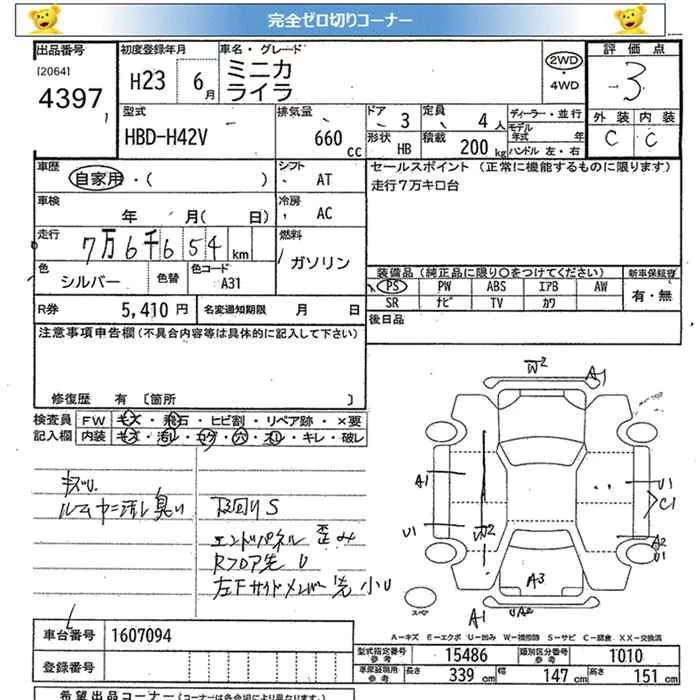 完全ゼロ切りコーナー
出品番号 初度登録年月 車名・グレード 評価点
[2064] H23 6月 ミニカ 2WD 3
4397 ライラ ・4WD
型式 排気量 ドア 3 定員 4人 ディーラー・並行 外装 内装
HBD-H42V 660cc 形状 HB 積載 200kg モデル年式 年 C C
ハンドル 左・右
車歴 シフト セールスポイント (正常に機能するものに限ります)
自家用・( ) AT 走行7万キロ台
車検 冷房
年 月( 日) AC
走行 7万6千654km 燃料
ガソリン
色 シルバー 色替 色コード A31 装備品(純正品に限り○をつけてください) 新車保証書
PS PW ABS エアB AW 有・無
R券 5,410円 名変通知期限 月 日 SR ナビ TV カワ
注意事項申告欄(不具合内容等は具体的に記入して下さい) 後日品
修復歴 有 〔箇所 〕
検査員 FW キズ・飛石・ヒビ割・リペア跡・×要
記入欄 内装 キズ・汚れ・コゲ・穴・スレ・キレ・破レ
キズU
ルームヤニ汚れ臭い 下回りS
エンドパネル歪み
Rフロア先U
左下サイドメンバー先小U
W2 A1
A1 U1
C1
U1 W2 A2
U1
A3
スペア A1 UA2
A-キズ E-エクボ U-凹み W-補修跡 S-サビ C-腐食 XX-交換済
車台番号 1607094 型式指定番号 参考 15486 類別区分番号 参考 1010
登録番号 参考 長さ 339cm 幅 147cm 高さ 151cm
希望出品コーナー(コーナーは各会場により異なります)